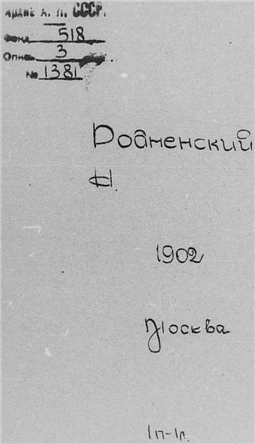 Архив А. Н. СССР.
Фонд 518
Опись 3
№ 1381
Родненский
Н.
1902
Москва
1п-1л.